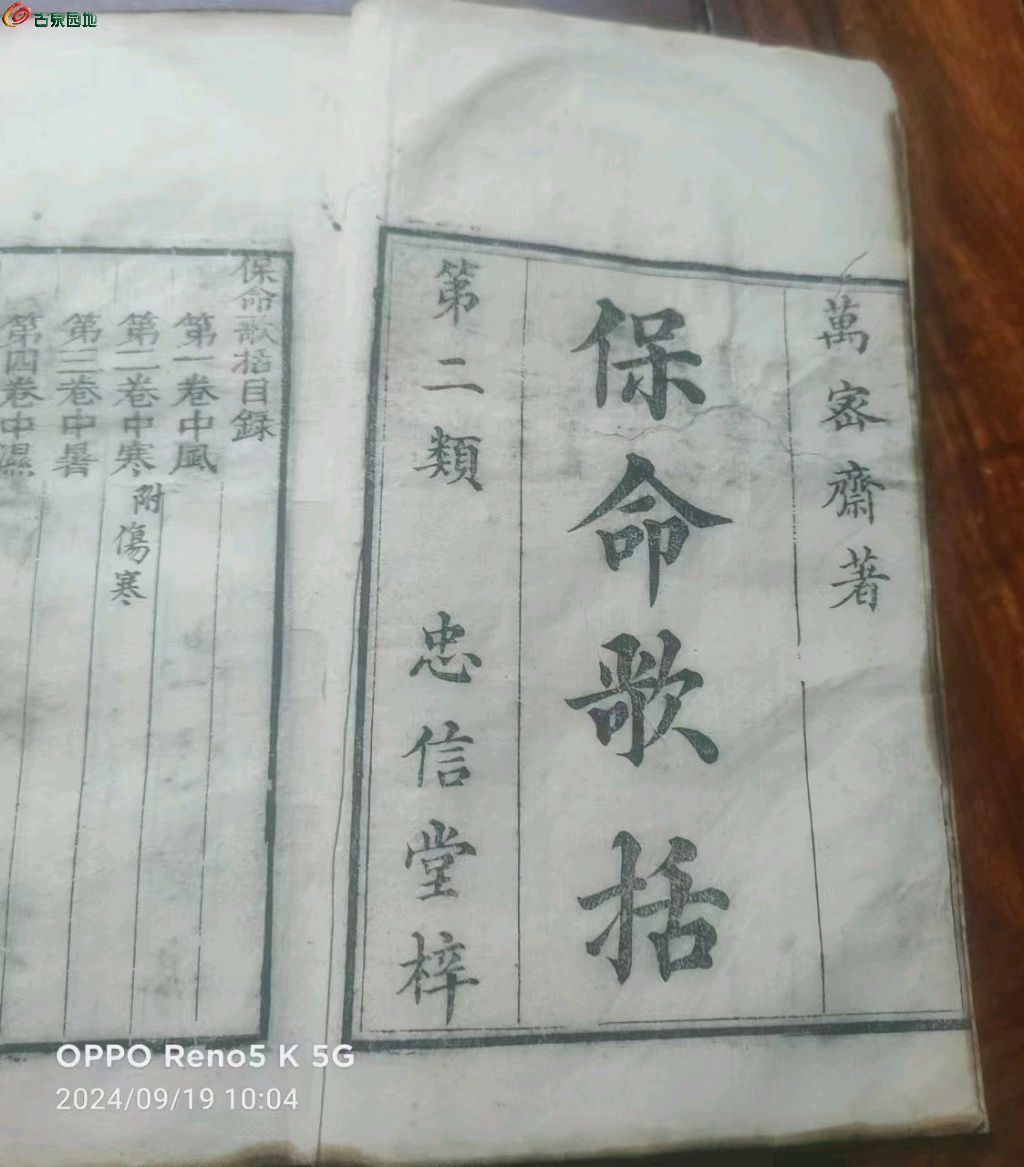 古泉园地
萬密齋著
保命歌括
第二類 忠信堂梓
保命歌括目録
第一卷中風
第二卷中寒附傷寒
第三卷中暑
第四卷中濕
OPPO Reno5 K 5G
2024/09/19 10:04